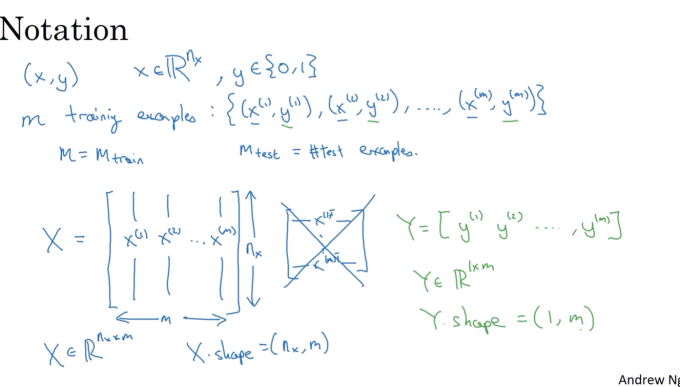 Notation
(x,y) x∈ℝ^{n_x}, y∈{0,1}
m training examples : {(x^{(1)}, y^{(1)}), (x^{(2)}, y^{(2)}), ...., (x^{(m)}, y^{(m)})}
M = M_{train} M_{test} = #test examples.
X = [ x^{(1)} x^{(2)} ... x^{(m)} ] n_x
m
x^{(1)T}
x^{(m)T}
Y = [ y^{(1)} y^{(2)} ...., y^{(m)} ]
Y∈ℝ^{1×m}
Y.shape = (1, m)
X∈ℝ^{n_x×m} X.shape = (n_x, m)
Andrew Ng